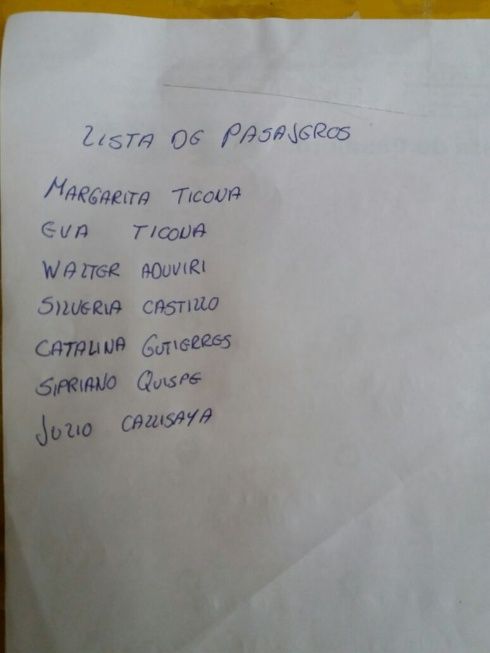 LISTA DE PASAJEROS
MARGARITA TICONA
EVA TICONA
WALTER ADUVIRI
SILVERIA CASTILLO
CATALINA GUTIERRES
SIPRIANO QUISPE
JULIO CALLISAYA